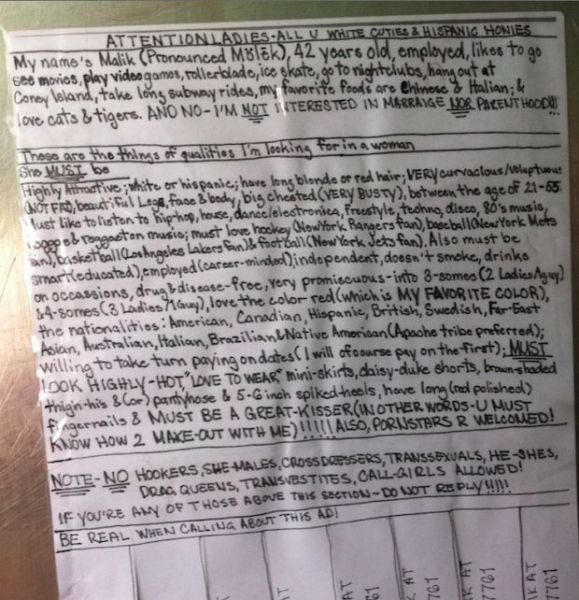 ATTENTION LADIES-ALL U WHITE CUTIES & HISPANIC HONIES
My name's Malik (Pronounced Mŏlēk), 42 years old, employed, likes to go
see movies, play video games, rollerblade, ice skate, go to nightclubs, hang out at
Coney Island, take long subway rides, my favorite foods are Chinese & Italian; &
love cats & tigers. AND NO-I'M NOT INTERESTED IN MARRAIGE NOR PARENTHOOD!!!
These are the things of qualities I'm looking for in a woman
She MUST be
Highly Attractive; white or hispanic; have long blonde or red hair; VERY curvacious/voluptuous
(NOT FAT), beautiful Legs, face & body, big chested (VERY BUSTY), between the age of 21-55
Must like to listen to hip-hop, house, dance/electronica, freestyle, techno, disco, 80's music,
reggae & reggaeton music; must love hockey (New York Rangers fan), baseball (New York Mets
fan), basketball (Los Angeles Lakers fan) & football (New York Jets fan). Also must be
smart (educated), employed (career-minded), independent, doesn't smoke, drinks
on occassions, drug & disease-free, very promiscuous-into 3-somes (2 Ladies/1 guy)
& 4-somes (3 Ladies/1 Guy), love the color red (which is MY FAVORITE COLOR),
the nationalities: American, Canadian, Hispanic, British, Swedish, Far-East
Asian, Australian, Italian, Brazilian & Native American (Apache tribe preferred);
willing to take turn paying on dates (I will ofcourse pay on the first); MUST
LOOK HIGHLY-HOT, "LOVE TO WEAR" mini-skirts, daisy-duke shorts, brown-shaded
thigh-his & (or) pantyhose & 5-6 inch spiked-heels, have long (red polished)
fingernails & MUST BE A GREAT-KISSER (IN OTHER WORDS-U MUST
KNOW HOW 2 MAKE-OUT WITH ME)!!!!! ALSO, PORNSTARS R WELCOMED!
NOTE-NO HOOKERS, SHE-MALES, CROSSDRESSERS, TRANSSEXUALS, HE-SHES,
DRAG QUEENS, TRANSVESTITES, CALL-GIRLS ALLOWED!
IF YOU'RE ANY OF THOSE ABOVE THIS SECTION-DO NOT REPLY!!!!!
BE REAL WHEN CALLING ABOUT THIS AD!
K AT
K AT
IK AT
7761
7761
7761